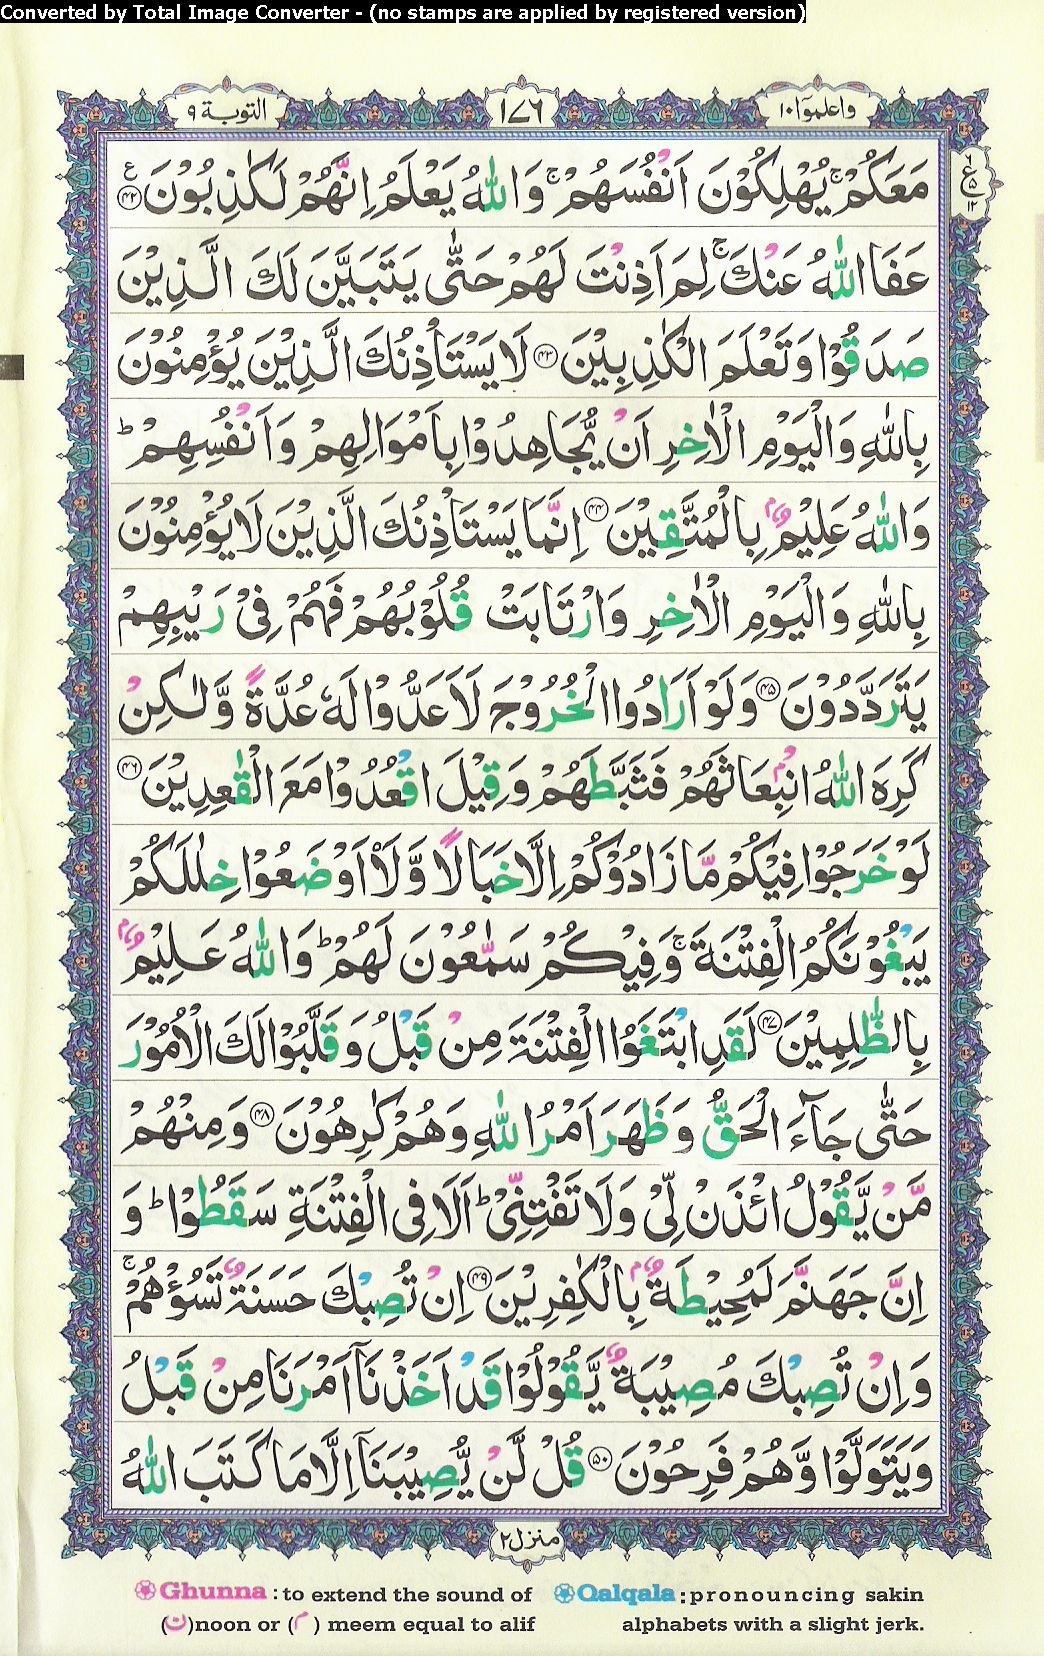 Converted by Total Image Converter - (no stamps are applied by registered version)
واعلموٓا ١٠
١٧٦
التوبة ٩
مَعَكُمْ ۚ يُهْلِكُوْنَ اَنْفُسَهُمْ ۚ وَاللّٰهُ يَعْلَمُ اِنَّهُمْ لَكٰذِبُوْنَ ﴿۴۲﴾ ع
٦ ع ٥ ١٢
عَفَا اللّٰهُ عَنْكَ ۚ لِمَ اَذِنْتَ لَهُمْ حَتّٰى يَتَبَيَّنَ لَكَ الَّذِيْنَ
صَدَقُوْا وَتَعْلَمَ الْكٰذِبِيْنَ ﴿۴۳﴾ لَا يَسْتَاْذِنُكَ الَّذِيْنَ يُؤْمِنُوْنَ
بِاللّٰهِ وَالْيَوْمِ الْاٰخِرِ اَنْ يُّجَاهِدُوْا بِاَمْوَالِهِمْ وَاَنْفُسِهِمْ ؕ
وَاللّٰهُ عَلِيْمٌۢ بِالْمُتَّقِيْنَ ﴿۴۴﴾ اِنَّمَا يَسْتَاْذِنُكَ الَّذِيْنَ لَا يُؤْمِنُوْنَ
بِاللّٰهِ وَالْيَوْمِ الْاٰخِرِ وَارْتَابَتْ قُلُوْبُهُمْ فَهُمْ فِىْ رَيْبِهِمْ
يَتَرَدَّدُوْنَ ﴿۴۵﴾ وَلَوْ اَرَادُوا الْخُرُوْجَ لَاَعَدُّوْا لَهٗ عُدَّةً وَّلٰكِنْ
كَرِهَ اللّٰهُ انْۢبِعَاثَهُمْ فَثَبَّطَهُمْ وَقِيْلَ اقْعُدُوْا مَعَ الْقٰعِدِيْنَ ﴿۴۶﴾
لَوْ خَرَجُوْا فِيْكُمْ مَّا زَادُوْكُمْ اِلَّا خَبَالًا وَّلَا۟اَوْضَعُوْا خِلٰلَكُمْ
يَبْغُوْنَكُمُ الْفِتْنَةَ ۚ وَفِيْكُمْ سَمّٰعُوْنَ لَهُمْ ؕ وَاللّٰهُ عَلِيْمٌۢ
بِالظّٰلِمِيْنَ ﴿۴۷﴾ لَقَدِ ابْتَغَوُا الْفِتْنَةَ مِنْ قَبْلُ وَقَلَّبُوْا لَكَ الْاُمُوْرَ
حَتّٰى جَآءَ الْحَقُّ وَظَهَرَ اَمْرُ اللّٰهِ وَهُمْ كٰرِهُوْنَ ﴿۴۸﴾ وَمِنْهُمْ
مَّنْ يَّقُوْلُ ائْذَنْ لِّىْ وَلَا تَفْتِنِّىْ ؕ اَلَا فِى الْفِتْنَةِ سَقَطُوْا ؕ وَ
اِنَّ جَهَنَّمَ لَمُحِيْطَةٌۢ بِالْكٰفِرِيْنَ ﴿۴۹﴾ اِنْ تُصِبْكَ حَسَنَةٌ تَسُؤْهُمْ ۚ
وَاِنْ تُصِبْكَ مُصِيْبَةٌ يَّقُوْلُوْا قَدْ اَخَذْنَاۤ اَمْرَنَا مِنْ قَبْلُ
وَيَتَوَلَّوْا وَّهُمْ فَرِحُوْنَ ﴿۵۰﴾ قُلْ لَّنْ يُّصِيْبَنَاۤ اِلَّا مَا كَتَبَ اللّٰهُ
منزل ٢
Ghunna : to extend the sound of (ن)noon or (م) meem equal to alif
Qalqala : pronouncing sakin alphabets with a slight jerk.